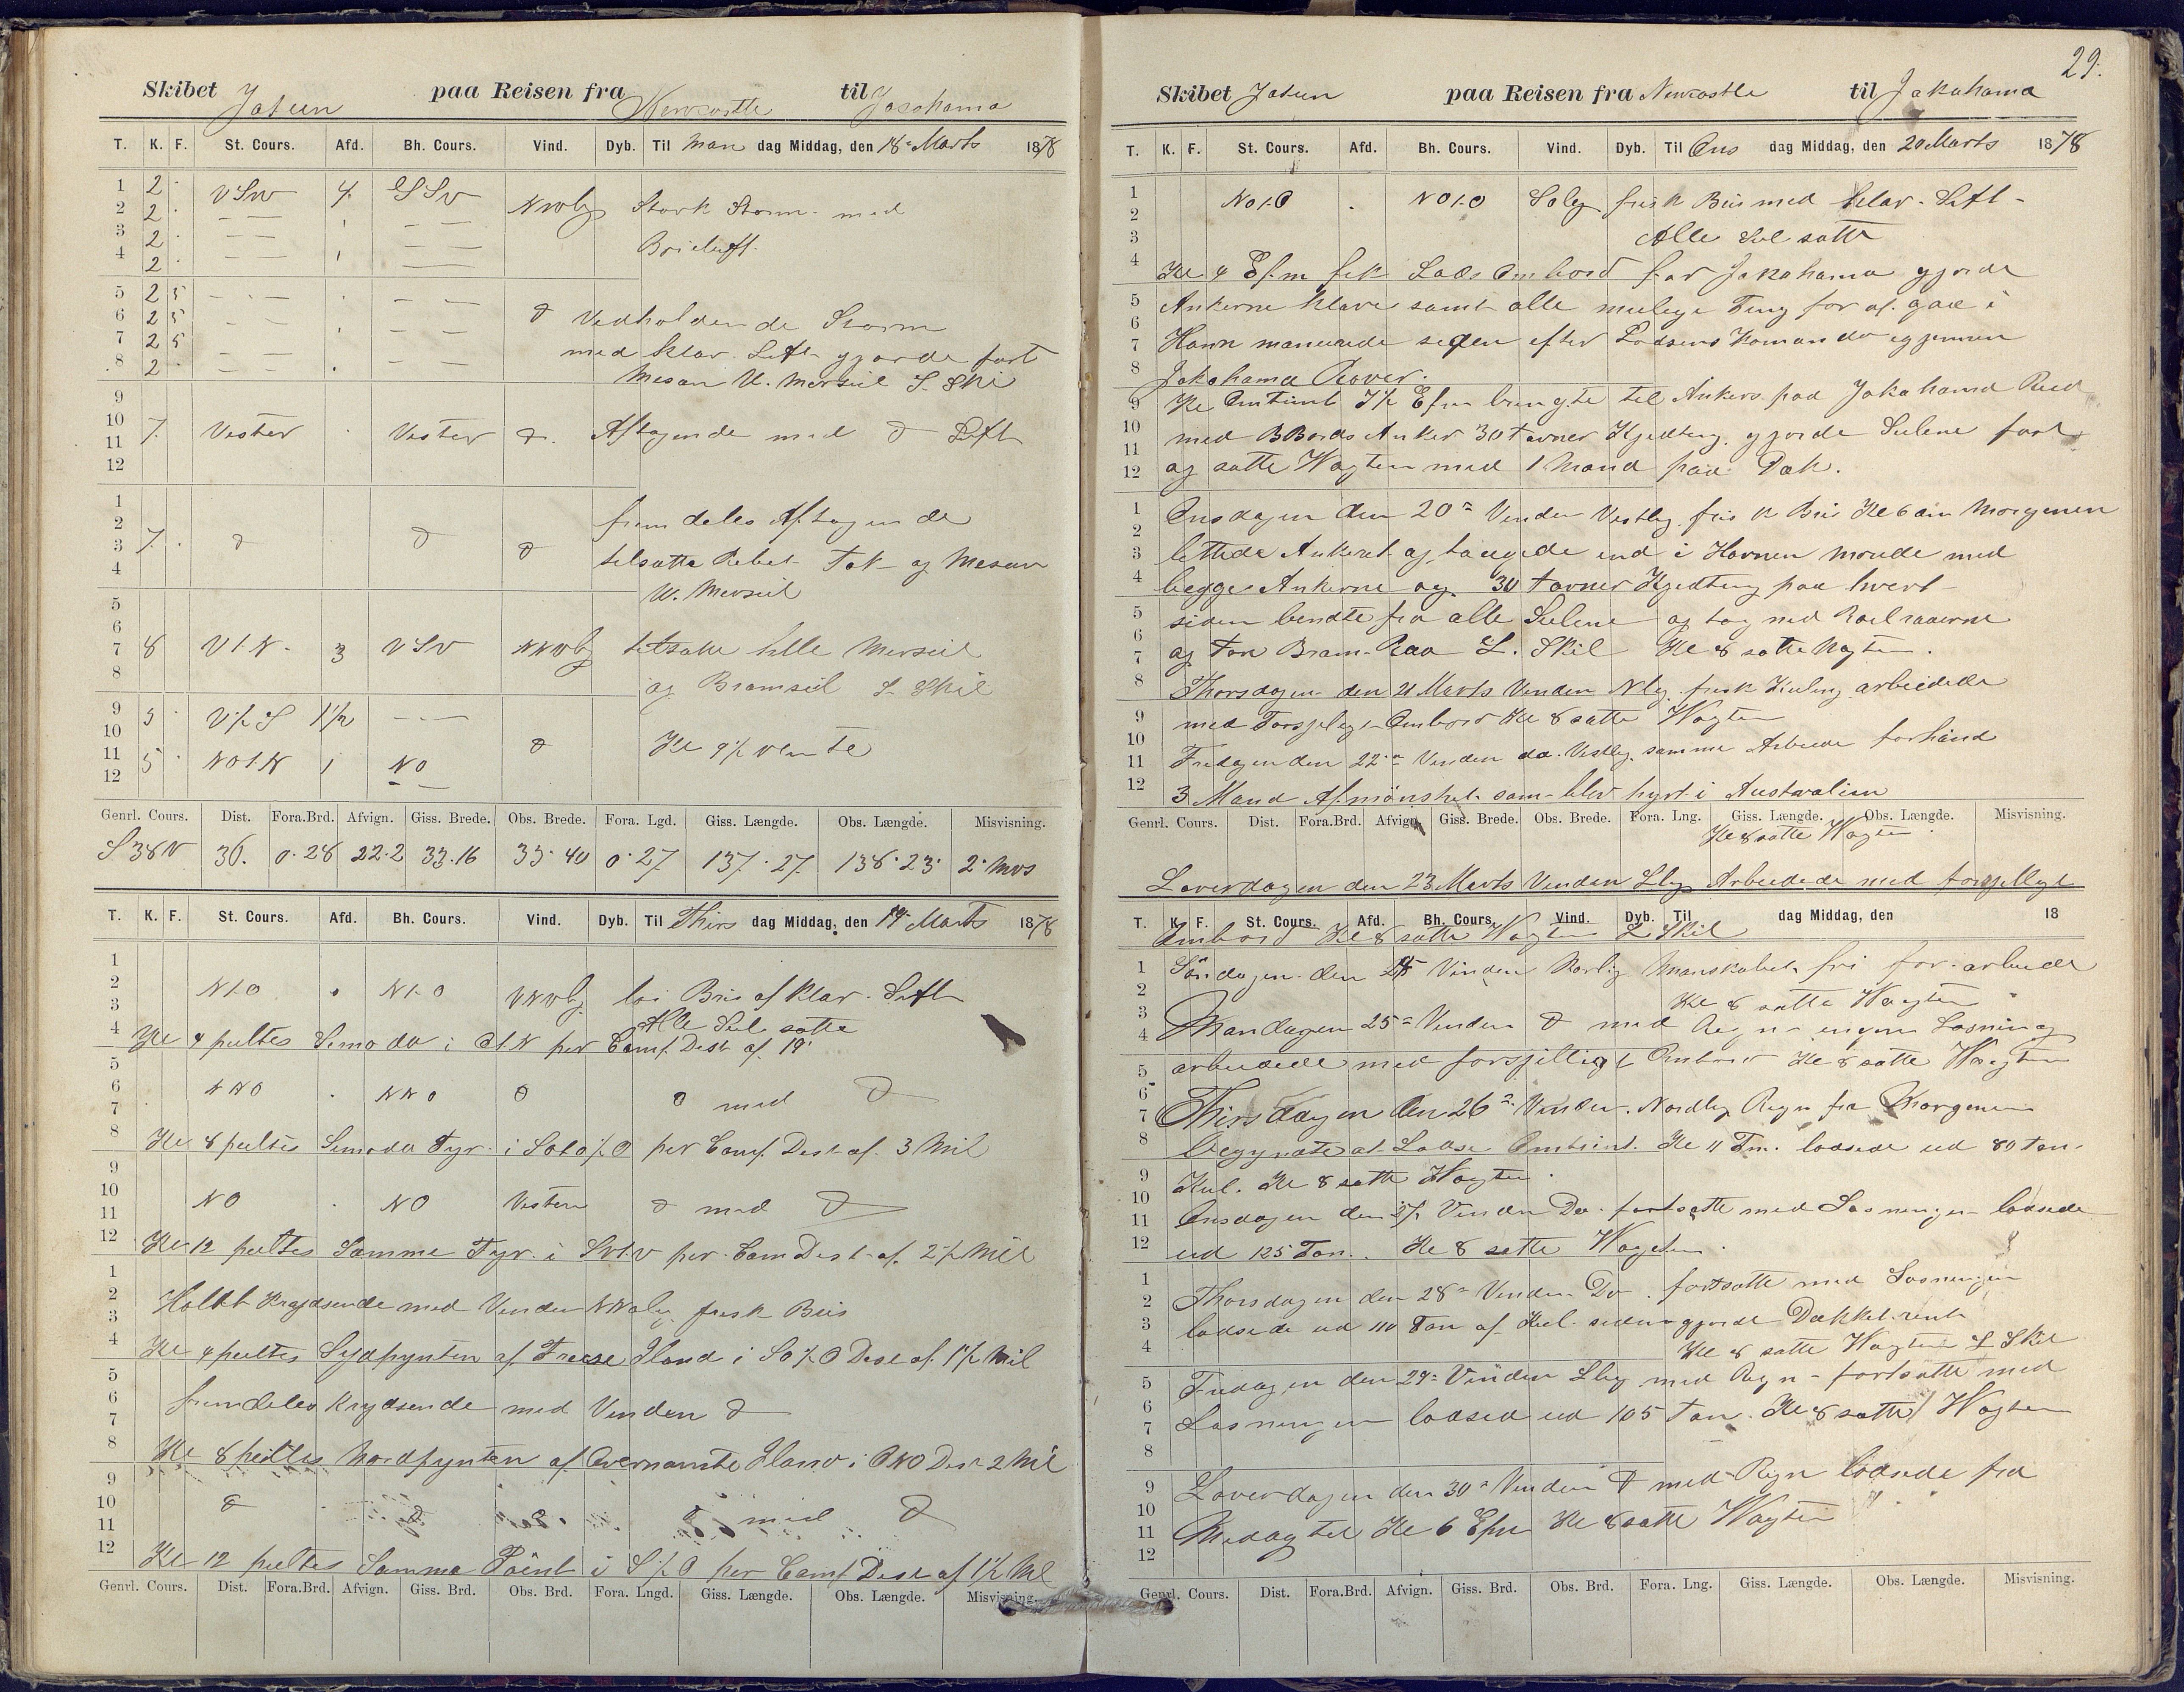 Skibet Jatun paa Reisen fra Newcastle til Jacohama
T. K. F. St. Cours. Afd. Bh. Cours. Vind. Dyb. Til Man dag Middag, den 18de Marts 1878
1 2 VSW 4 SSV NWlig Stærk Storm med
2 2
3 2 Brieluft
4 2
5 2 5
6 2 5 d Vedholdende Storm
7 2 5 med klar Luft gjorde fast
8 2 Mesan U. Merseil S. Skil
9
10
11 7 Vester Vester d. Aftagende med d Luft
12
1 fremdeles Aftagende
2
3 7 d d d tilsatte Rebet Fok og Mesan
4 U. Merseil
5
6
7 8 V t. N 3 VSV NNVlig tilsatte hele Merseil
8 og Bramseil S. Skil
9 5 V ½ S 1½
10 d Kl 9½ vente
11 5 NO t. N 1 NO
12
Genrl. Cours. Dist. Fora.Brd. Afvign. Giss. Brede. Obs. Brede. Fora. Lgd. Giss. Længde. Obs. Længde. Misvisning.
S 38 V 36. 0.28 22.2 33.16 33.40 0.27 137.27 138.23 2
T. K. F. St. Cours. Afd. Bh. Cours. Vind. Dyb. Til Thirs dag Middag, den 19 Marts 1878
1
2 N t. O N t. O VNVlig lai Bris af klar Luft
3 Alle Seil satte
4 Kl 4 peiltes Simoda i O t. N per Comp. Dist af 18'
5
6 NNO NNO d d med d
7
8 Kl 8 peiltes Simoda Fyr i SO t. O ½ O per Comp. Dist af 3 Mil
9
10 NO NO Vesten d med d
11
12 Kl 12 peiltes Samme Fyr i SV t. V per Com Dist af 2½ Mil
1
2 Holdt Krydsende med Vinden NNOlig frisk Bris
3
4 Kl 4 peiltes Sydpynten af Freese Iland i SO ½ O Dist af 1½ Mil
5
6 fremdeles Krydsende med Vinden d
7
8 Kl 8 peiltes Nordpynten af Overnamte Iland i ONO Dist 2 Mil
9
10 d d d d med d
11
12 Kl 12 peiltes Samme Point i S ½ O per Comp Dist af 1½ Mil
Genrl. Cours. Dist. Fora.Brd. Afvign. Giss. Brd. Obs. Brd. Fora. Lngd. Giss. Længde. Obs. Længde. Misvisning.
29.
Skibet Jatun paa Reisen fra Newcastle til Jakohama
T. K. F. St. Cours. Afd. Bh. Cours. Vind. Dyb. Til Ons dag Middag, den 20 Marts 1878
1 NO t. O NO t. O SOlig frisk Bris med klar Luft
2
3 Alle Seil satte
4 Kl 4 Efm fik Lods Ombord for Jakohama gjorde
5 Ankerne klare samt alle mulige Ting for at gaa i
6
7 Havn manuvrede siden efter Lodsens Komando igjennem
8 Jakohama Rover.
9 Kl Omtrent 7½ Efm bragte til Ankers paa Jakohama Red
10 med BBords Anker 30 Favner Kjedting, gjorde Seilene fast
11
12 og satte Vagten med 1 Mand paa Dæk.
1 Onsdagen den 20de Vinden Vestlig frisk Bris Kl 6 om Morgenen
2
3 lettede Ankeret og taugede ind i Havnen morede med
4 begge Ankerne og 30 Favner Kjedting paa hvert
5 siden bendte fra alle Seilene og tog ned Roelraaerne
6
7 og For Bram-Raa S. Skil Kl 8 satte Vagten.
8 Thorsdagen den 21 Marts Vinden Nlig frisk Kuling arbeidede
9 med Forsjelig Ombord Kl 8 satte Vagten
10
11 Fredagen den 22de Vinden do. Vestlig samme Arbeide forhaand
12 3 Mand Afmønstret som blev hyrt i Australien
Genrl. Cours. Dist. Fora.Brd. Afvign. Giss. Brede. Obs. Brede. Fora. Lng. Giss. Længde. Obs. Længde. Misvisning.
Kl 8 satte Vagten
Løverdagen den 23 Marts Vinden Slig Arbeidede med forsjelligt
T. K. F. St. Cours. Afd. Bh. Cours. Vind. Dyb. Til dag Middag, den 18
Ombord Kl 8 satte Vagten S Skil
1 Søndagen den 24 Vinden Norlig Manskabet fri for arbeide
2 Kl 8 satte Vagten
3
4 Mandagen 25de Vinden d med Regn ingen Losning
5 arbeidede med forsjelligt Ombord Kl 8 satte Vagten
6
7 Thirsdagen den 26de Vinden Nordlig Regn fra Morgenen
8 begynate at Lodse Omtrint Kl 11 Fm. lodsede ud 80 Ton
9 Kul. Kl 8 satte Vagten
10
11 Onsdagen den 27 Vinden Do. fortsatte med Losningen lodsede
12 ud 125 Ton. Kl 8 satte Vagten.
1
2 Thorsdagen den 28de Vinden Do. fortsatte med Losningen
3 lodsede ud 110 Ton af Kul siden gjorde Dækket rent
4 Kl 8 satte Vagten S Skil
5 Fredagen den 29de Vinden Slig med Regn fortsatte med
6
7 Losningen lodsed ud 105 Ton. Kl 8 satte Vagten
8
9 Løverdagen den 30de Vinden d med Regn lodsede fra
10
11 Midag til Kl 6 Efm Kl 8 satte Vagten
12
Genrl. Cours. Dist. Fora.Brd. Afvign. Giss. Brd. Obs. Brd. Fora. Lng. Giss. Længde. Obs. Længde. Misvisning.